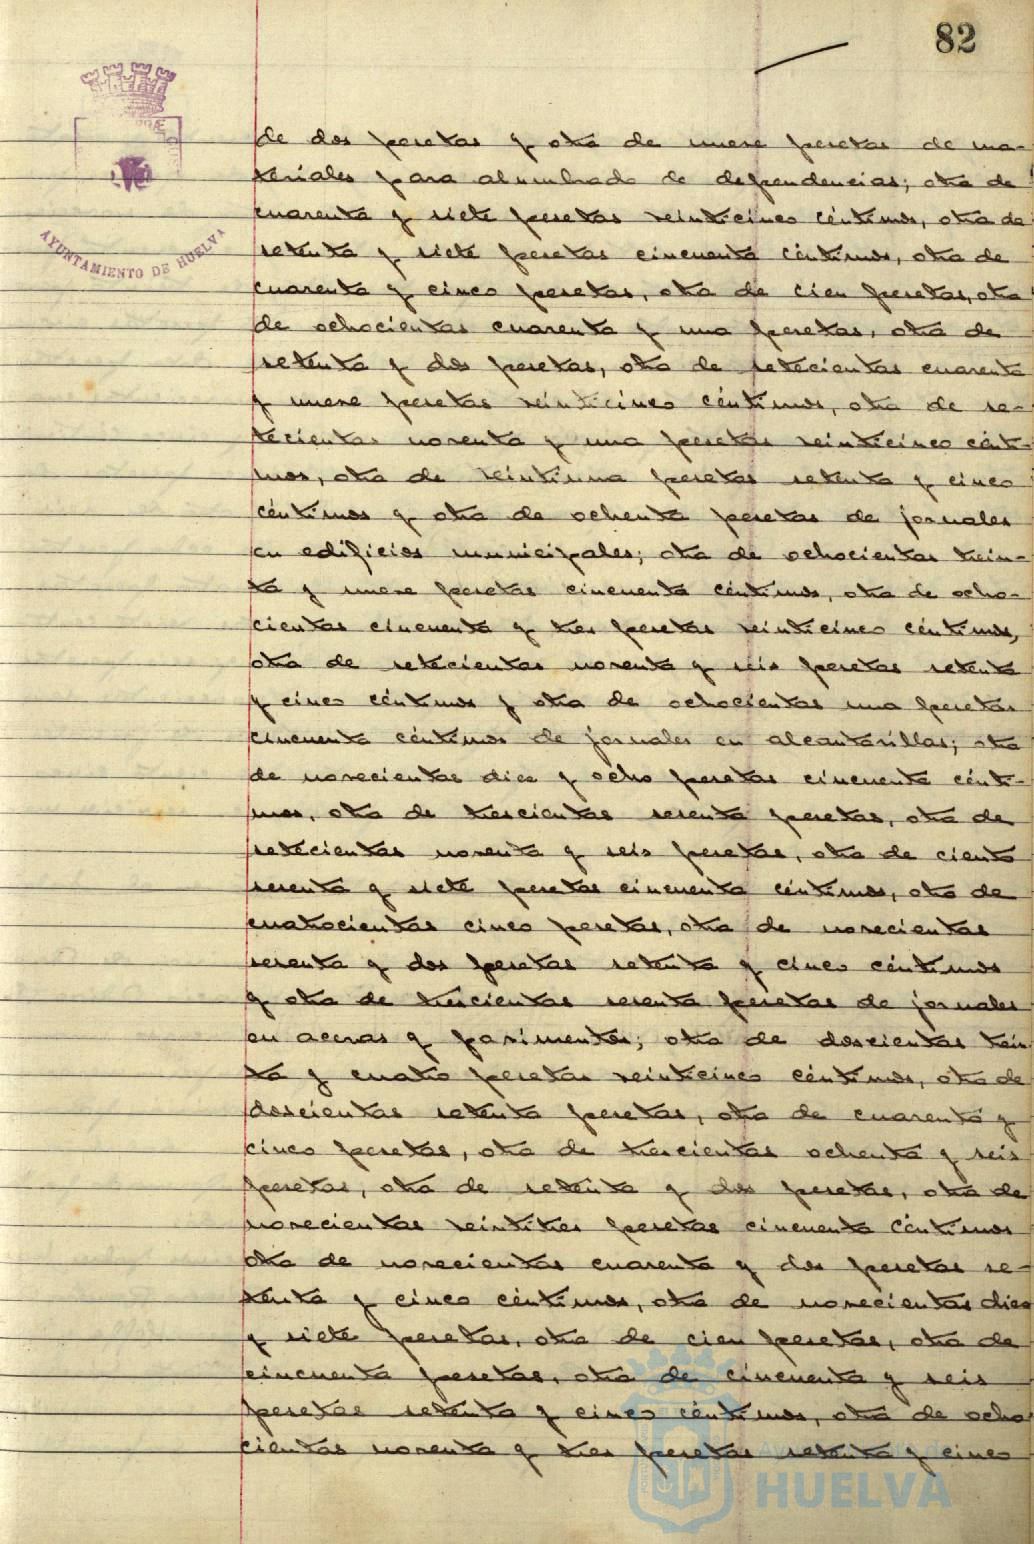 82
AYUNTAMIENTO DE HUELVA
de dos pesetas y otra de nueve pesetas de ma-
teriales para alumbrado de dependencias; otra de
cuarenta y siete pesetas veinticinco céntimos, otra de
setenta y siete pesetas cincuenta céntimos, otra de
cuarenta y cinco pesetas, otra de cien pesetas, otra
de ochocientas cuarenta y una pesetas, otra de
setenta y dos pesetas, otra de setecientas cuarenta
y nueve pesetas veinticinco céntimos, otra de se-
tecientas noventa y una pesetas veinticinco cénti-
mos, otra de veintiuna pesetas setenta y cinco
céntimos y otra de ochenta pesetas de jornales
en edificios municipales; otra de ochocientas trein-
ta y nueve pesetas cincuenta céntimos, otra de ocho-
cientas cincuenta y tres pesetas veinticinco céntimos,
otra de setecientas noventa y seis pesetas setenta
y cinco céntimos y otra de ochocientas una pesetas
cincuenta céntimos de jornales en alcantarillas; otra
de novecientas diez y ocho pesetas cincuenta cénti-
mos, otra de trescientas sesenta pesetas, otra de
setecientas noventa y seis pesetas, otra de ciento
sesenta y siete pesetas cincuenta céntimos, otra de
cuatrocientas cinco pesetas, otra de novecientas
sesenta y dos pesetas setenta y cinco céntimos
y otra de trescientas sesenta pesetas de jornales
en aceras y pavimentos; otra de doscientas trein
ta y cuatro pesetas veinticinco céntimos, otra de
doscientas setenta pesetas, otra de cuarenta y
cinco pesetas, otra de trescientas ochenta y seis
pesetas, otra de setenta y dos pesetas, otra de
novecientas veintitres pesetas cincuenta céntimos
otra de novecientas cuarenta y dos pesetas se-
tenta y cinco céntimos, otra de novecientas diez
y siete pesetas, otra de cien pesetas, otra de
cincuenta pesetas, otra de cincuenta y seis
pesetas setenta y cinco céntimos, otra de ocho
cientas noventa y tres pesetas setenta y cinco
HUELVA